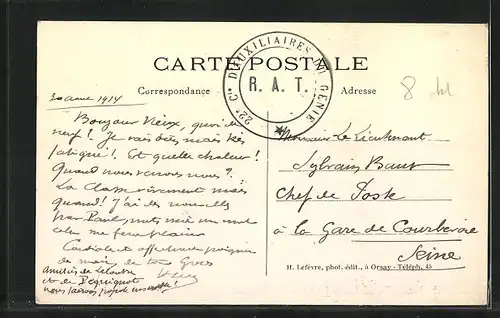 CARTE POSTALE
22e Cie D'AUXILIAIRES DU GÉNIE
R. A. T.
Correspondance
Adresse
8
1914
Bonjour Vieux, quoi de
neuf? Je vais très mais très
fatigué! Et quelle chaleur!
Quand nous
La classe vivement mais
quand! J'ai des nouvelles
par Paul, mets moi un mot
cela me fera plaisir
Cordiale et affectueuse poignée
de main de ton Gros
Amitiés de
et de Bequignot
Monsieur Le Lieutenant
Sylvain
Chef de Poste
à la Gare de Courbevoie
Seine
H. Lefèvre, phot. édit., à Orsay - Téléph. 45